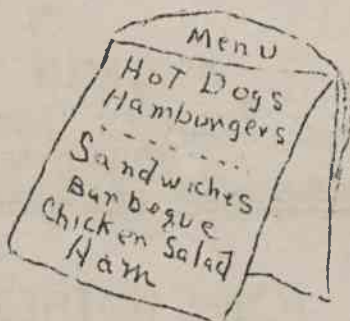 Menu
Hot Dogs
Hamburgers
Sandwiches
Barbeque
Chicken Salad
Ham